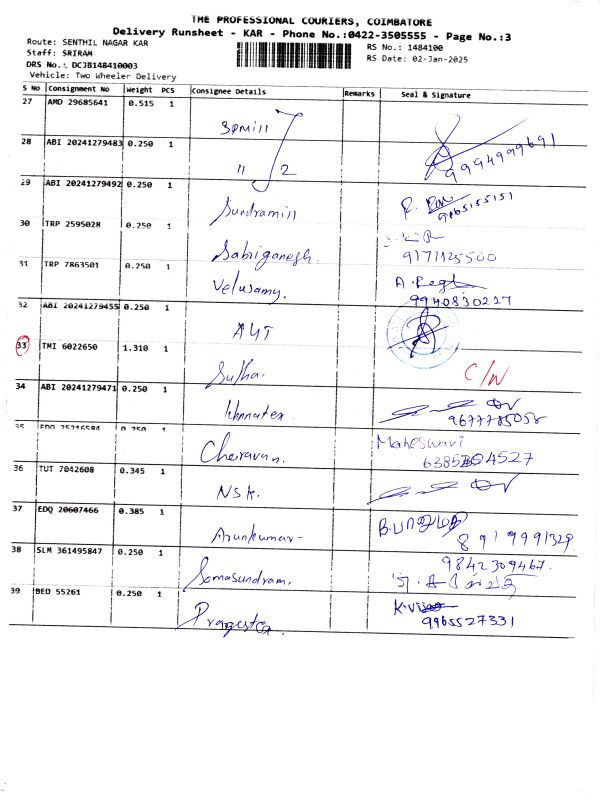 THE PROFESSIONAL COURIERS, COIMBATORE
Delivery Runsheet - KAR - Phone No.:0422-3505555 - Page No.:3
Route: SENTHIL NAGAR KAR
Staff: SRIRAM
DRS No.: DCJB148410003
Vehicle: Two Wheeler Delivery
RS No.: 1484100
RS Date: 02-Jan-2025
S No Consignment No Weight PCS Consignee Details Remarks Seal & Signature
27 AMD 29685641 0.515 1
28 ABI 20241279483 0.250 1 11 2 9994999691
29 ABI 20241279492 0.250 1 Sundramill 9965155151
30 TRP 2595028 0.250 1 Sabriganesh. 9171125500
31 TRP 7863501 0.250 1 Velusamy. 9940830227
32 ABI 20241279455 0.250 1
33 TMI 6022650 1.310 1 Sutha. C/N
34 ABI 20241279471 0.250 1 9677785058
35 EDQ 25216584 0.250 1 Maheswari
36 TUT 7042608 0.345 1 NSK.
37 EDQ 20607466 0.385 1 Arunkumar 8919991329
38 SLM 361495847 0.250 1 Somasundram. 9842309467.
39 BED 55261 0.250 1 9965527331